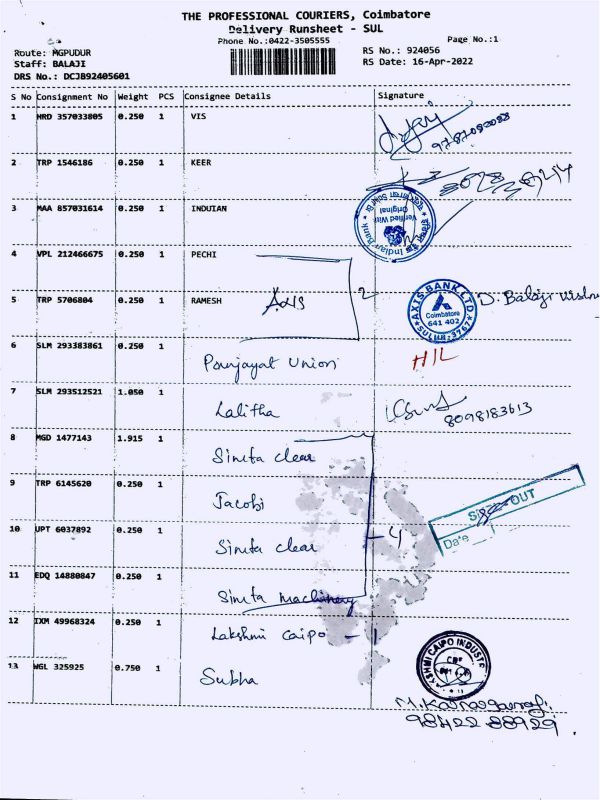 THE PROFESSIONAL COURIERS, Coimbatore
Delivery Runsheet - SUL
Phone No.:0422-3505555
Page No.:1
Route: MGPUDUR
RS No.: 924056
Staff: BALAJI
RS Date: 16-Apr-2022
DRS No.: DCJB92405601
S No Consignment No Weight PCS Consignee Details Signature
1 HRD 357033805 0.250 1 VIS
9787082088
2 TRP 1546186 0.250 1 KEER
3 MAA 857031614 0.250 1 INDUIAN
Indian Bank
Verified With Original
4 VPL 212466675 0.250 1 PECHI
5 TRP 5706804 0.250 1 RAMESH Axis 2
AXIS BANK LTD
Coimbatore
641 402
SULUR: 3767
D. Balaji
6 SLM 293383861 0.250 1 Punjayat Union HIL
7 SLM 293512521 1.050 1 Lalitha
8098183613
8 MGD 1477143 1.915 1 Simta clear
9 TRP 6145620 0.250 1 Jacobi
OUT
Date
10 UPT 6037892 0.250 1 Simta clear 4
11 EDQ 14880847 0.250 1 Simta machinery
12 IXM 49968324 0.250 1 Lakshmi Caipo - 1
LAKSHMI CAIPO INDUSTR
CBE
13 WGL 325925 0.750 1 Subha
98422 88929